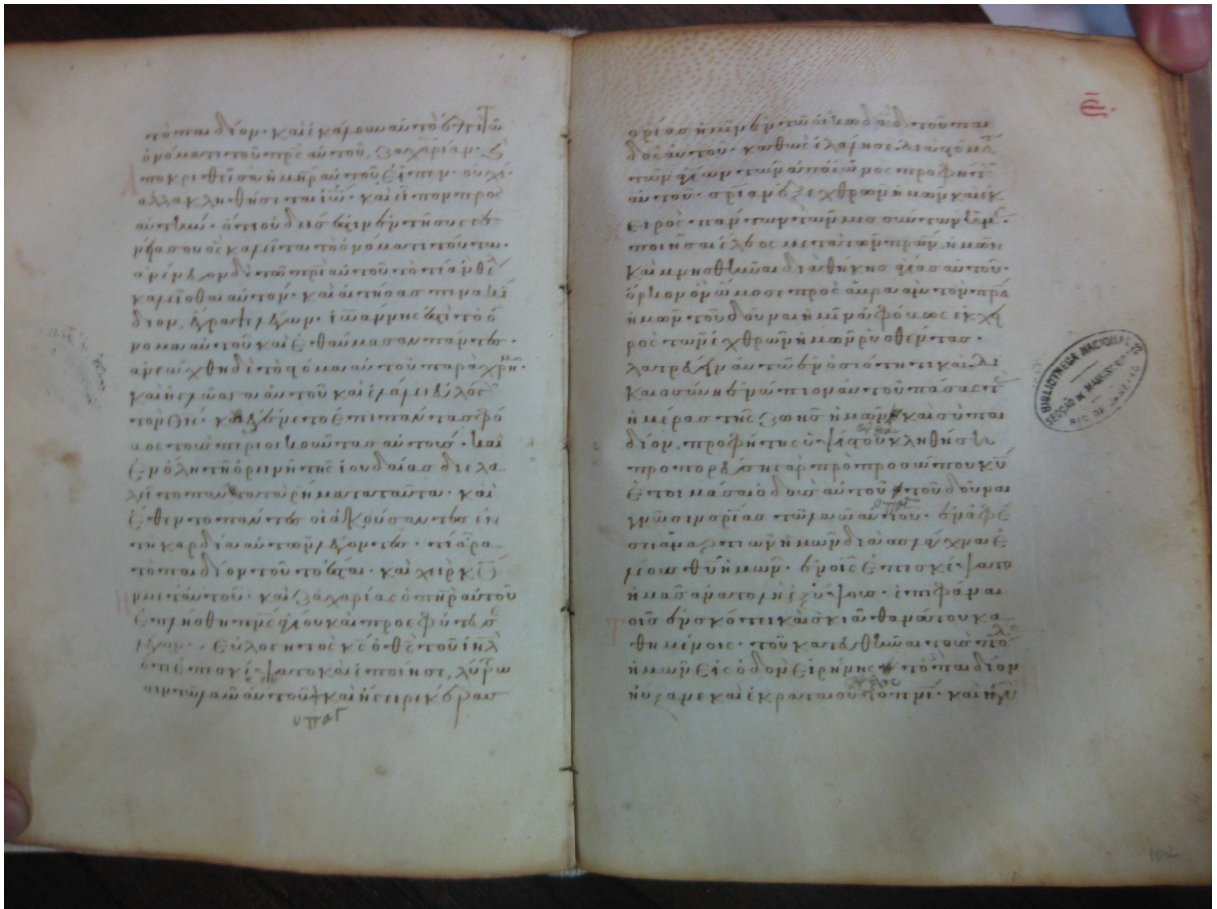 το παιδίον· και εκάλουν αυτο επι τῶ
ὀνόματι τοῦ πρς αυτοῦ, Ζαχαρίαν·
ποκριθεῖσα ἡ μηρ αυτοῦ εἶπεν· ουχί·
αλλα κληθήσεται ἰω· και εἶπον προς
αυτὴν· ὅτι ουδεὶς ἐστιν ἐν τῆ συγγε
νεία σου ὃς καλεῖται τῶ ὀνόματι τούτω·
ἐνένευον δε τῶ πρι αυτοῦ το τί ἂν θέλ
καλεῖσθαι αυτόν· και αιτήσας πινακί
διον, ἔγραψε λέγων· ἰωάννης ἐστι το ὄ
νομα αυτοῦ και ἐθαύμασαν πάντες·
ἀνεώχθη δε το στόμα αυτοῦ παραχρῆμ·
και ἡ γλῶσσα αυτοῦ και ἐλάλει ευλογῶ
τὸν θν· και ἐγένετο ἐπι πάντας φό
βος τοὺς περιοικοῦντας αυτούς· και
ἐν ὅλη τῆ ὀρεινῆ τῆς ἰουδαίας διελα
λεῖτο πάντα τα ῥήματα ταῦτα· και
ἔθεντο πάντες οἱ ἀκούσαντες ἐν
τῆ καρδία αυτῶν λέγοντες· τί ἄρα
το παιδίον τοῦτο ἔσται· και χεὶρ κυ
ἦν μετ αυτοῦ· και Ζαχαρίας ὁ πηρ αυτοῦ
ἐπλήσθη πνς ἁγίου και προεφήτευσε
λέγων· Ευλογητος κς ὁ θς τοῦ ιηλ
ὅτι ἐπεσκέψατο και ἐποίησε λύτρω
σιν τῶ λαῶ αυτοῦ και ἤγειρε κέρας
υπαν
ε
σρίας ἡμῖν ἐν τῶ οἴκω δαδ τοῦ παι
δος αυτοῦ· καθὼς ἐλάλησε δια στόματ
τῶν ἁγίων τῶν ἀπ αἰῶνος προφητ
αυτοῦ· σρίαν ἐξ ἐχθρῶν ἡμῶν και ἐκ
χειρος πάντων τῶν μισούντων ἡμ·
ποιῆσαι ἔλεος μετα τῶν πρων ἡμῶν
και μνησθῆναι διαθήκης ἁγίας αυτοῦ·
ὅρκον ὃν ὤμοσε προς ἀβρααμ τον πρα
ἡμῶν τοῦ δοῦναι ἡμῖν ἀφόβως ἐκ χει
ρος τῶν ἐχθρῶν ἡμῶν ῥυσθέντας·
λατρεύειν αυτῶ ἐν ὁσιότητι και δι
καιοσύνη ἐνώπιον αυτοῦ πάσας τ
ἡμέρας τῆς ζωῆς ἡμῶν· και συ παι
δίον, προφήτης ὑψίστου κληθήση
προπορεύση γαρ προ προσώπου κυ
ἑτοιμάσαι ὁδους αυτοῦ τοῦ δοῦναι
γνῶσιν σρίας τῶ λαῶ αυτοῦ· ἐν ἀφέ
σει ἁμαρτιῶν ἡμῶν δια σπλάγχνα ἐ
λέους θυ ἡμῶν· ἐν οἷς ἐπεσκέψατο
ἡμᾶς ἀνατολη ἐξ ὕψους· ἐπιφᾶναι
τοῖς ἐν σκότει και σκιᾶ θανάτου κα
θημένοις· τοῦ κατευθῦναι τους πόδ
ἡμῶν εἰς ὁδον εἰρήνης· το παιδίον
ηὔξανε και ἐκραταιοῦτο πνι· και ἦν
BIBLIOTHECA NACIONAL DO
SECÇÃO DE MANUSCRIPTOS
RIO DE JANEIRO
102